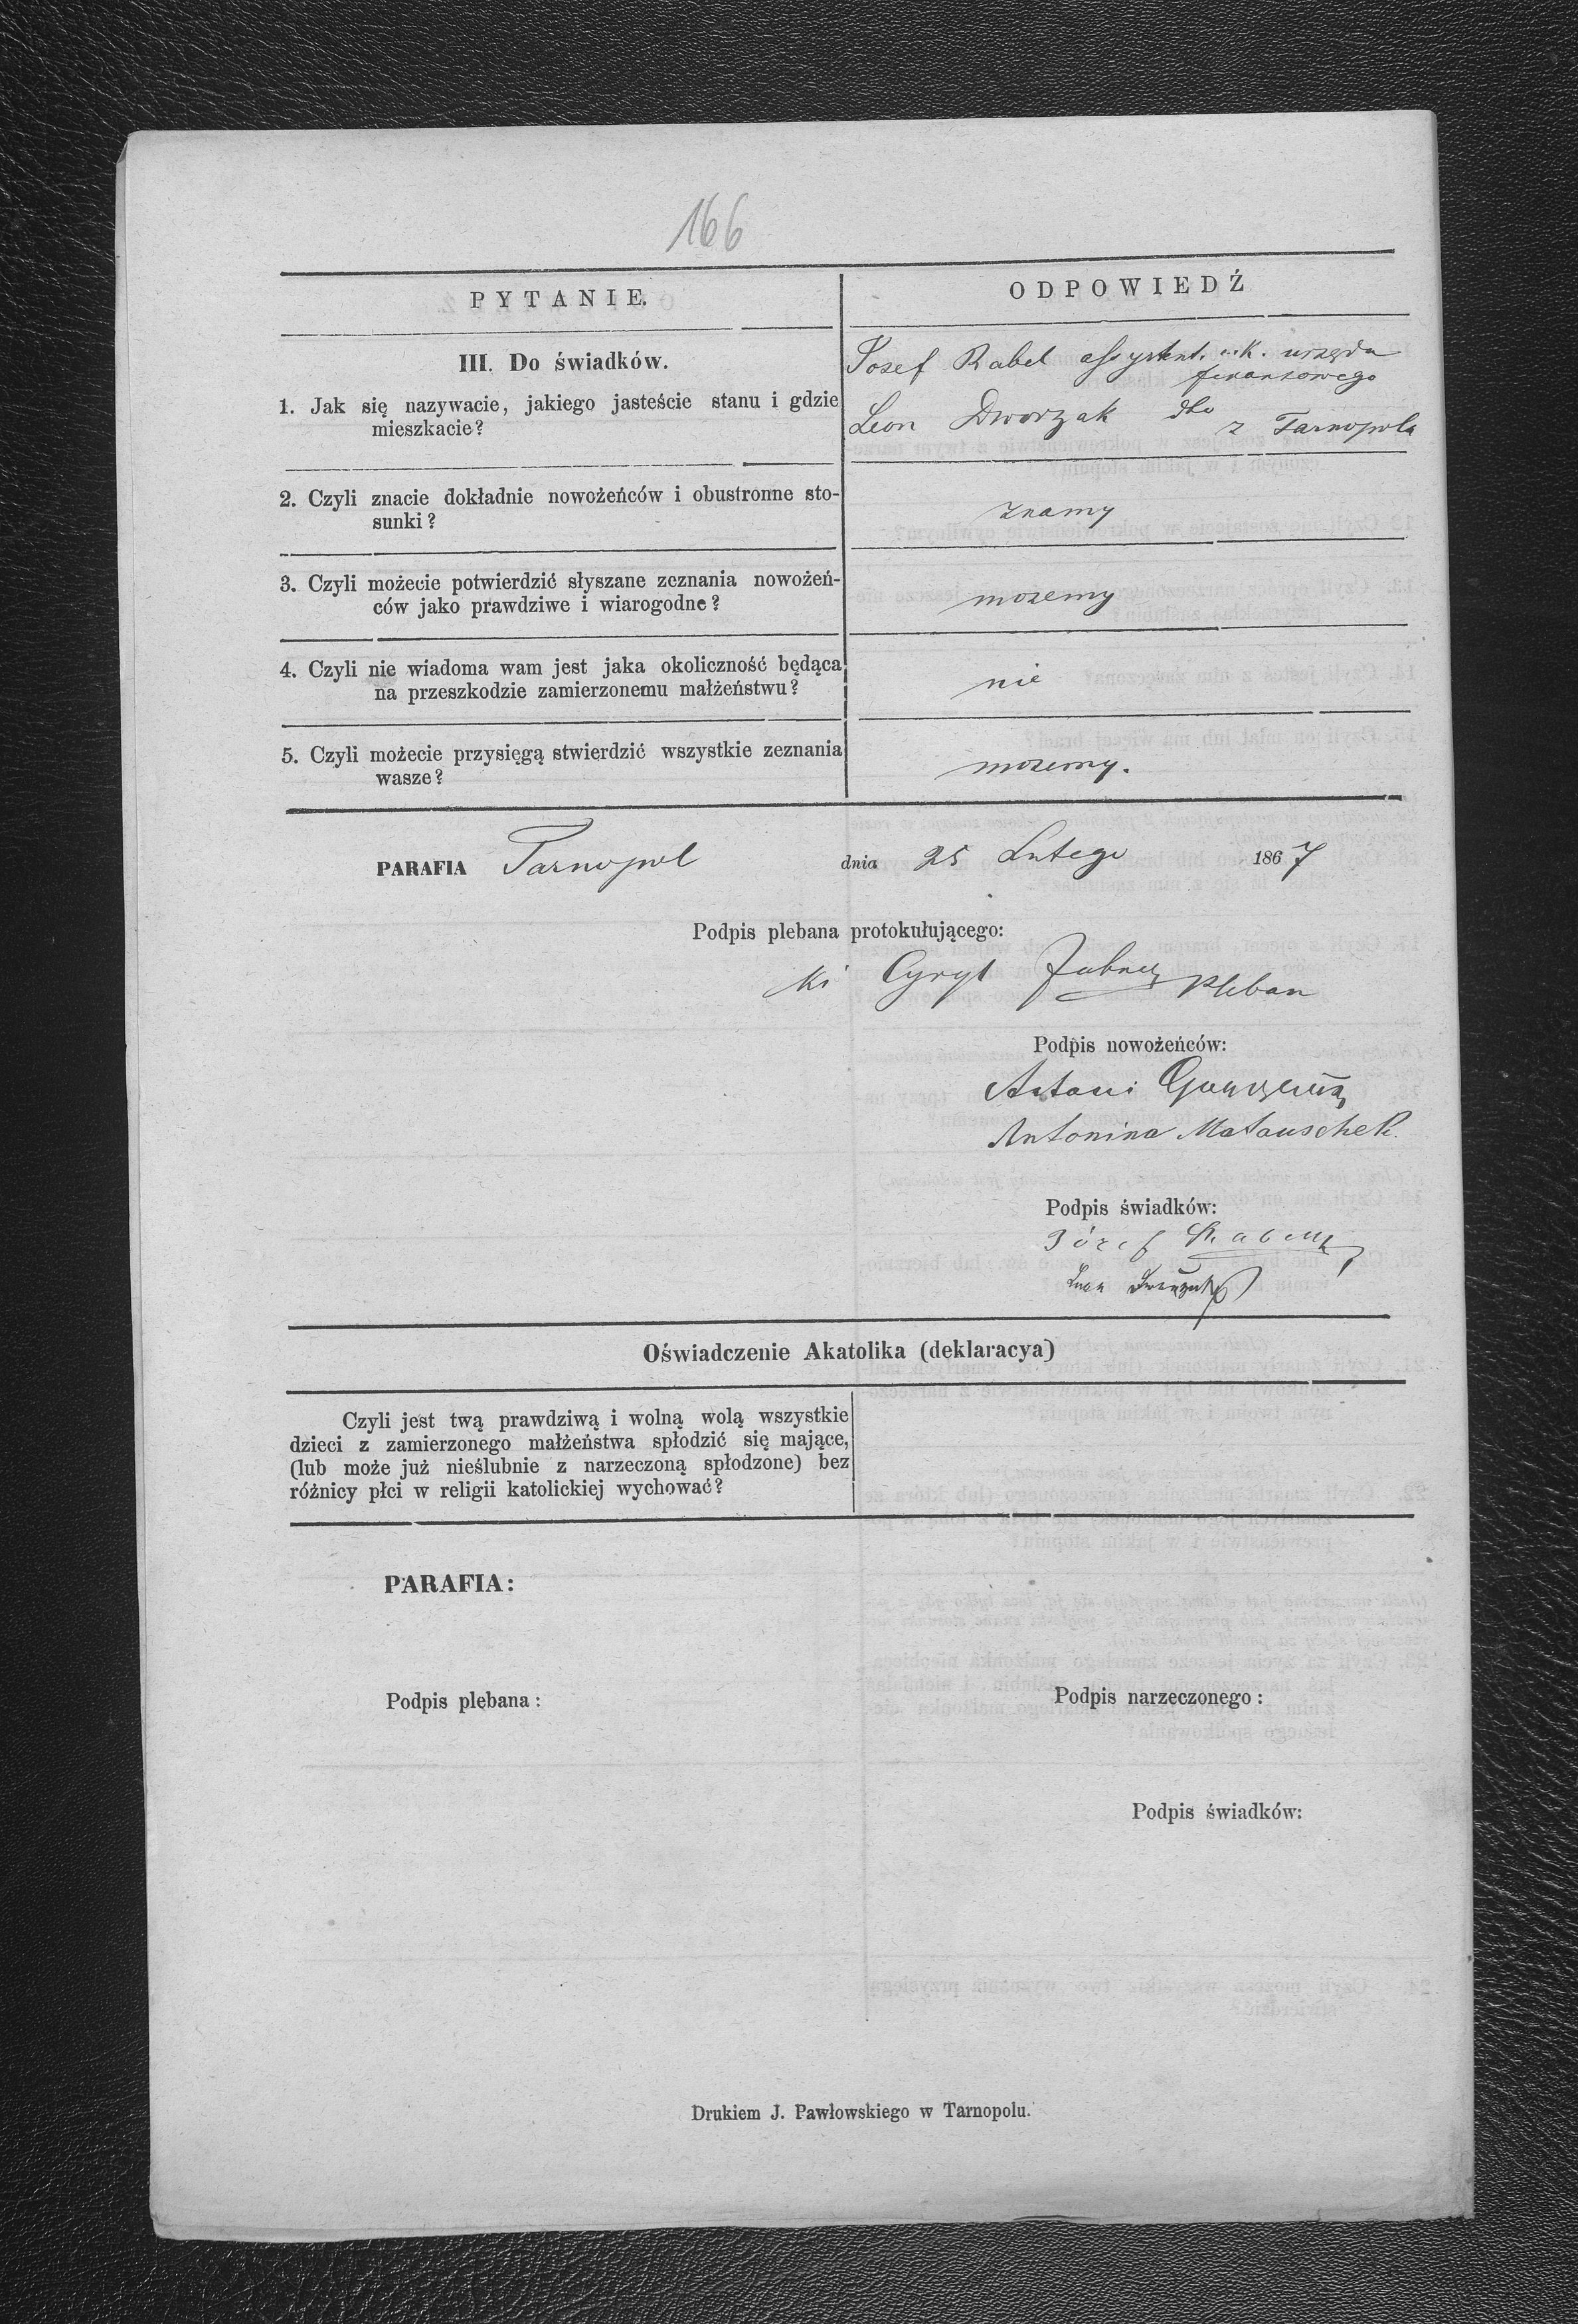 166
PYTANIE.
ODPOWIEDŹ
III. Do świadków.
1. Jak się nazywacie, jakiego jasteście stanu i gdzie
mieszkacie?
Josef Rabel assystent. c.k. urzędu
finansowego
Leon Dworzak dto z Tarnopola
2. Czyli znacie dokładnie nowożeńców i obustronne sto-
sunki?
znamy
3. Czyli możecie potwierdzić słyszane zeznania nowożeń-
ców jako prawdziwe i wiarogodne?
mozemy
4. Czyli nie wiadoma wam jest jaka okoliczność będąca
na przeszkodzie zamierzonemu małżeństwu?
nie
5. Czyli możecie przysięgą stwierdzić wszystkie zeznania
wasze?
mozemy.
PARAFIA Tarnopol dnia 25 Lutego 1867
Podpis plebana protokułującego:
Cyryl Pleban
Podpis nowożeńców:
Antoni
Antonina Matauschek
Podpis świadków:
Józef
Oświadczenie Akatolika (deklaracya)
Czyli jest twą prawdziwą i wolną wolą wszystkie
dzieci z zamierzonego małżeństwa spłodzić się mające,
(lub może już nieślubnie z narzeczoną spłodzone) bez
różnicy płci w religii katolickiej wychować?
PARAFIA:
Podpis plebana:
Podpis narzeczonego:
Podpis świadków:
Drukiem J. Pawłowskiego w Tarnopolu.